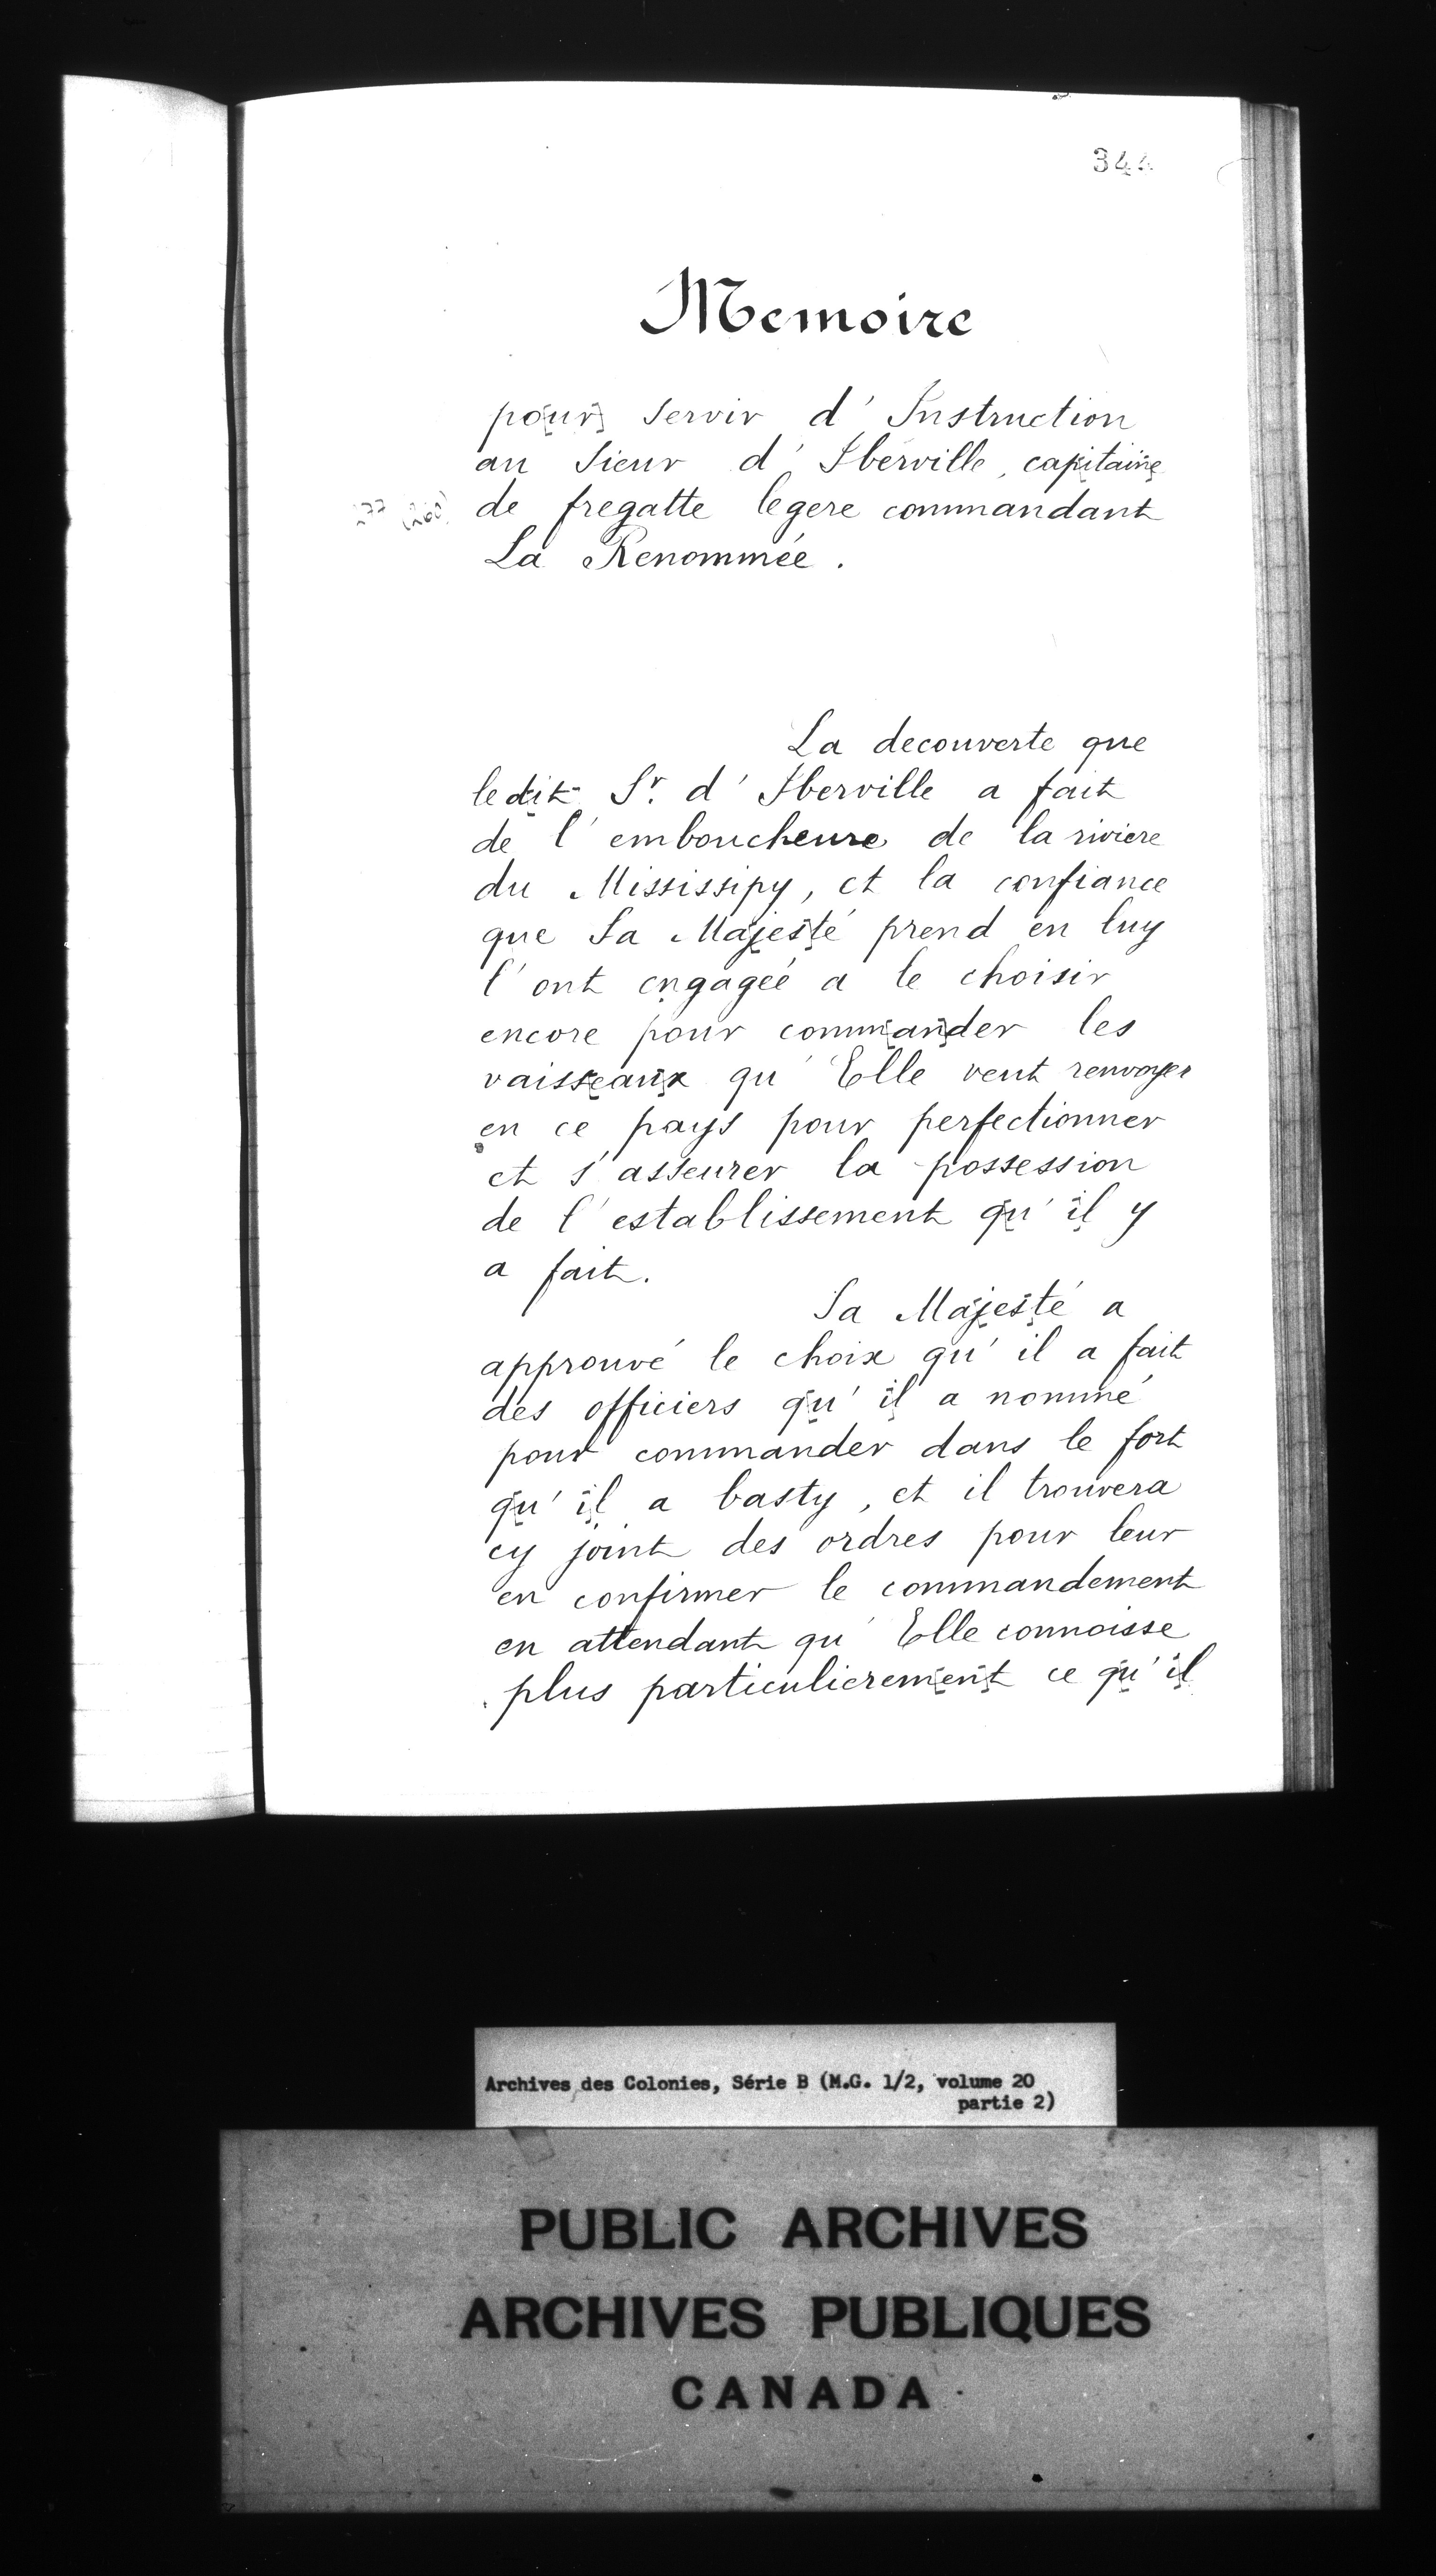 344
Memoire
pour servir d'Instruction
au Sieur d'Iberville, capitaine
de fregatte legere commandant
La Renommée.
La decouverte que
ledit Sr. d'Iberville a fait
de l'emboucheure de la riviere
du Mississipy, et la confiance
que Sa Majesté prend en luy
l'ont engagée a le choisir
encore pour commander les
vaisseaux qu'Elle veut renvoyer
en ce pays pour perfectionner
et s'asseurer la possession
de l'establissement qu'il y
a fait.
Sa Majesté a
approuvé le choix qu'il a fait
des officiers qu'il a nommé
pour commander dans le fort
qu'il a basty, et il trouvera
cy joint des ordres pour leur
en confirmer le commandement
en attendant qu'Elle connoisse
plus particulierement ce qu'il
Archives des Colonies, Série B (M.G. 1/2, volume 20
partie 2)
PUBLIC ARCHIVES
ARCHIVES PUBLIQUES
CANADA